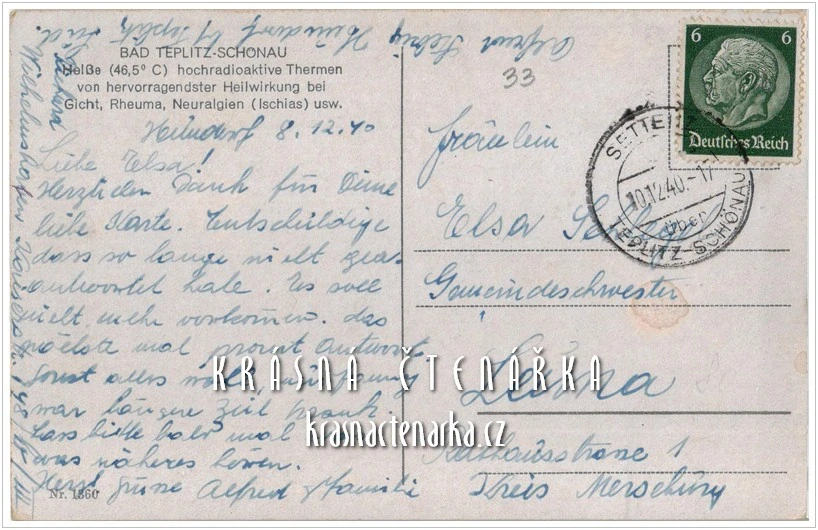 BAD TEPLITZ-SCHÖNAU
Heiße (46,5° C) hochradioaktive Thermen
von hervorragendster Heilwirkung bei
Gicht, Rheuma, Neuralgien (Ischias) usw.
8.12.40
Liebe Elsa!
Herzlichen Dank für Deine
liebe Karte. Entschuldige
dass so lange nicht geant
antwortet habe. Es soll
nicht mehr vorkommen. das
nächste mal prompt Antwort.
Sonst alles wohl
war längere Zeit krank.
Lass bitte bald mal
was näheres hören.
Herzl Grüsse Alfred & Familie
Nr. 1360
33
6 6
Deutsches Reich
10.12.40.-17
über
TEPLITZ-SCHÖNAU
Fräulein
Elsa
Gemeindeschwester
Leuna
Rathausstrasse 1
Kreis Merseburg
KRÁSNÁ ČTENÁŘKA
krasnactenarka.cz